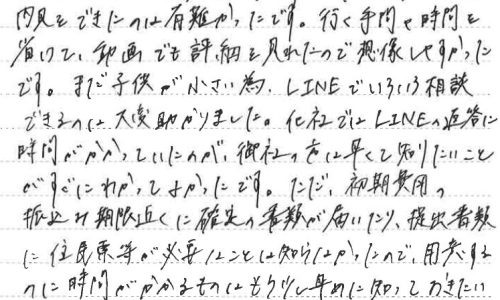 内見をできたのは有難かったです。行く手間や時間を
省けて、動画でも詳細を見れたので想像しやすかった
です。まだ子供が小さい為、LINEでいろいろ相談
できるのは大変助かりました。他社ではLINEの返答に
時間がかかっていたのが、御社の方は早くて知りたいこと
がすぐにわかってよかったです。ただ、初期費用の
振込み期限近くに確定の書類が届いたり、提出書類
に住民票等が必要なことは知らなかったので、用意する
のに時間がかかるものはもう少し早めに知っておきたい